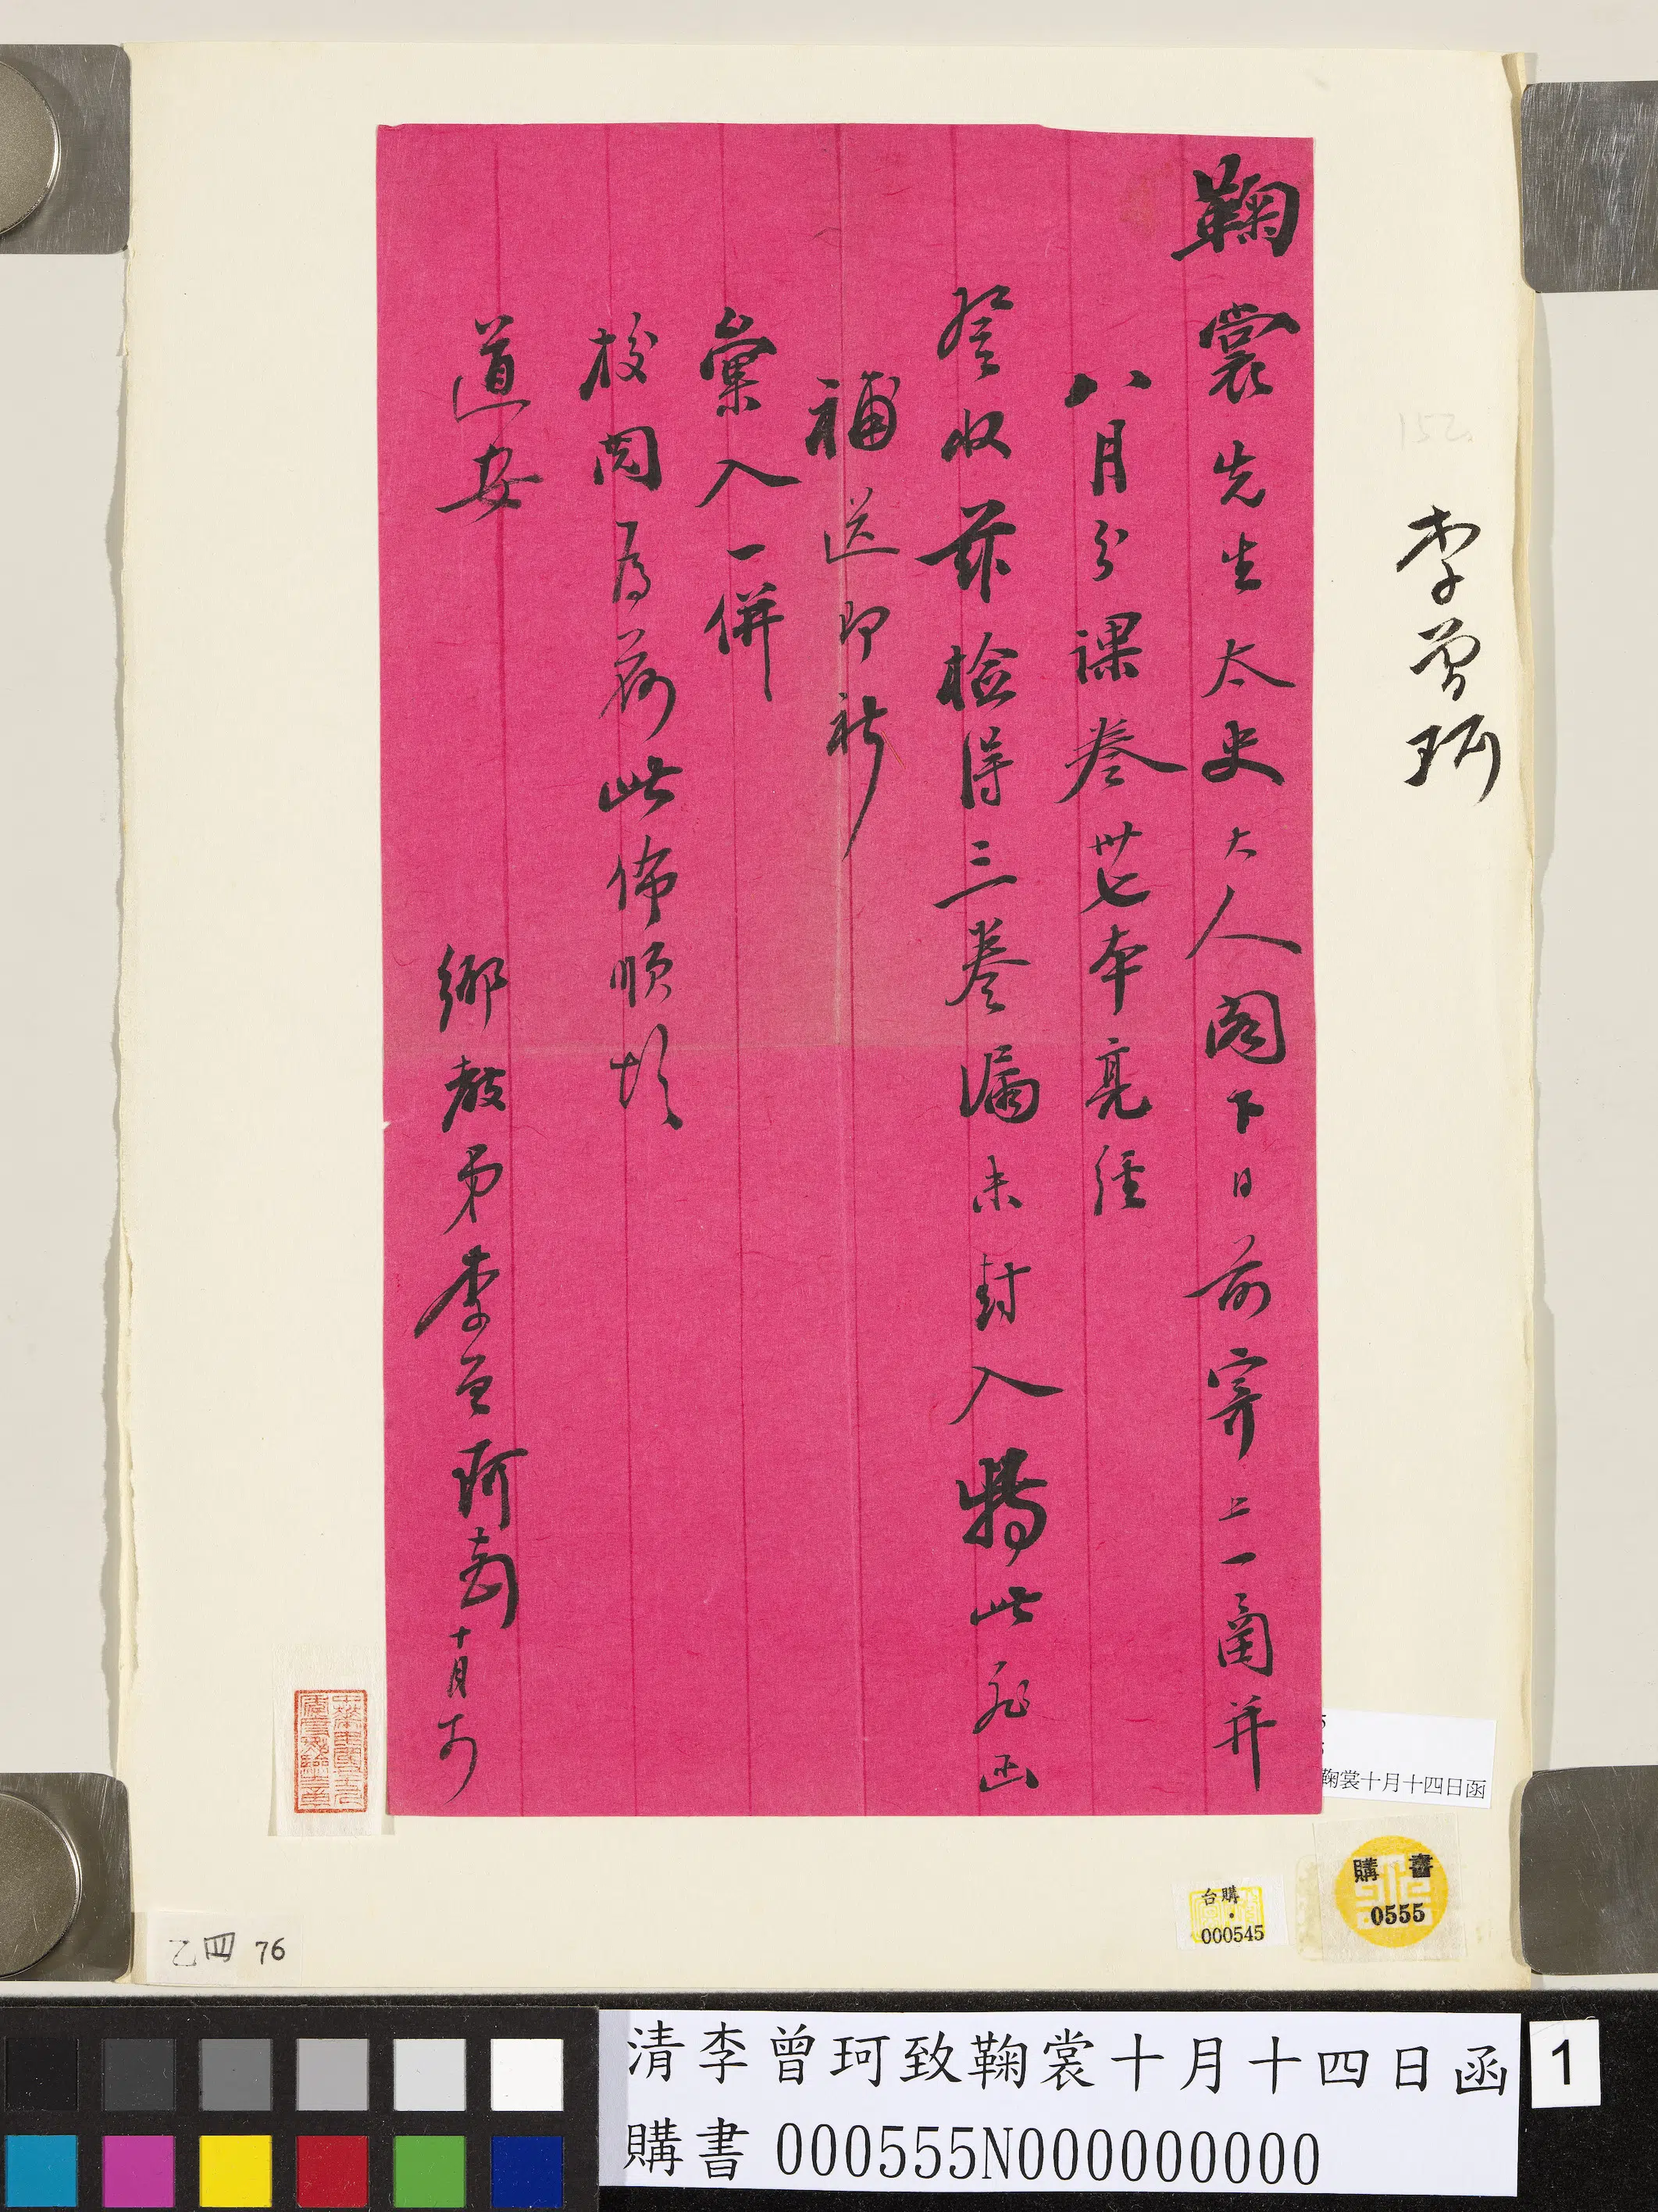 鞠裳先生太史大人閣下日前寄上一函并
八月分課卷卅七本亮經
詧收茲檢得三卷漏未封入特此飛函
補送即祈
彙入一併
校閱為荷此佈順頌
道安
鄉教弟李曾珂頓十月十四
李曾珂
152
鞠裳十月十四日函
購書
0555
台購
000545
乙四 76
清李曾珂致鞠裳十月十四日函
購書 000555N000000000
1